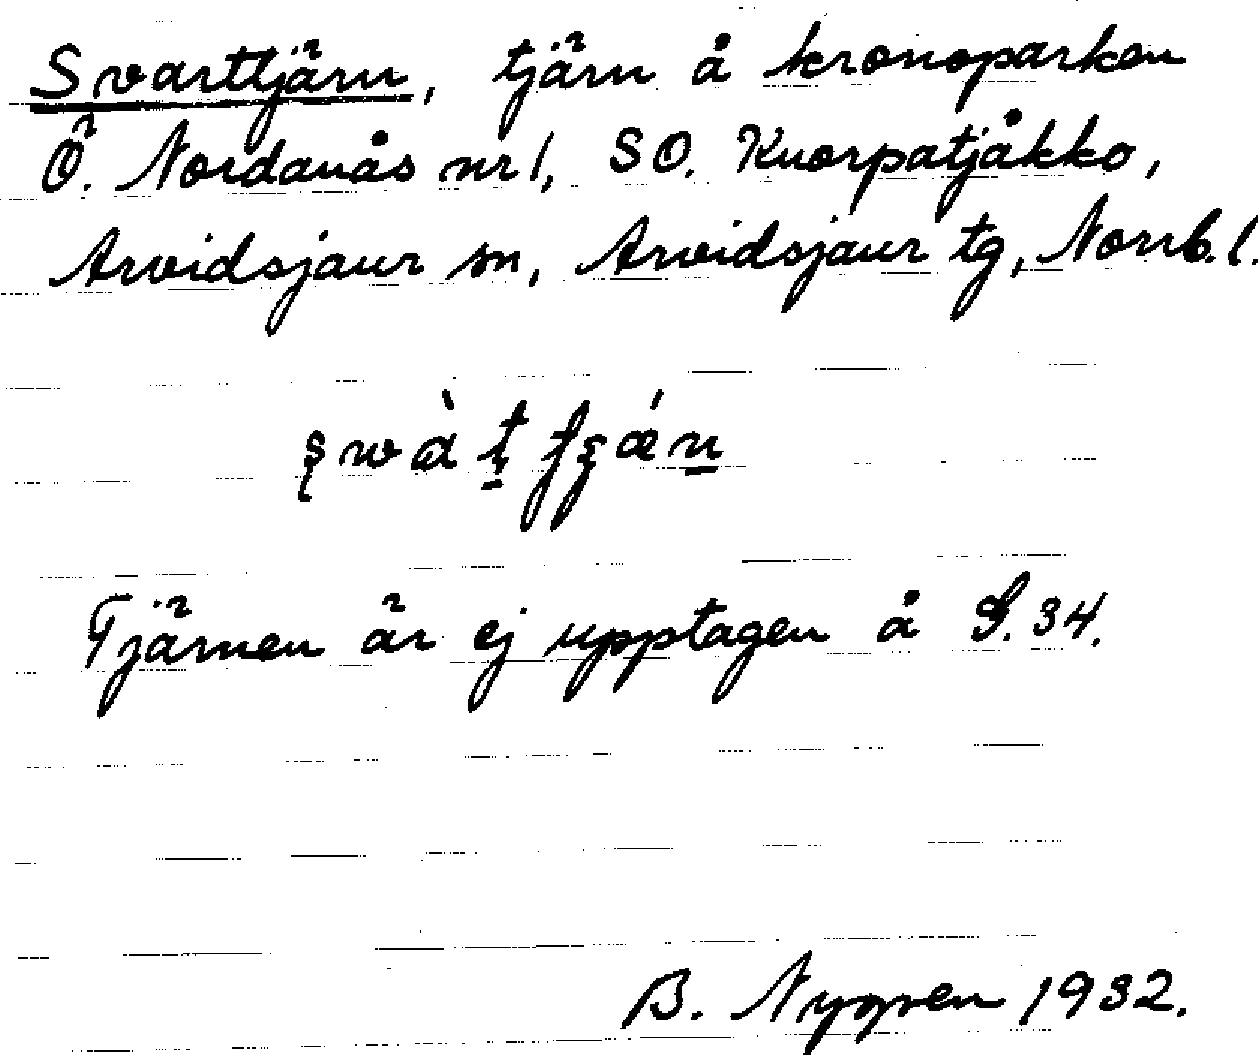 Svarttjärn, tjärn å kronoparken
Ö. Nordanås nr 1, SO. Kuorpatjåkko,
Arvidsjaur sn, Arvidsjaur tg, Norrb. l.
Tjärnen är ej upptagen å S. 34.
B. Nygren 1932.